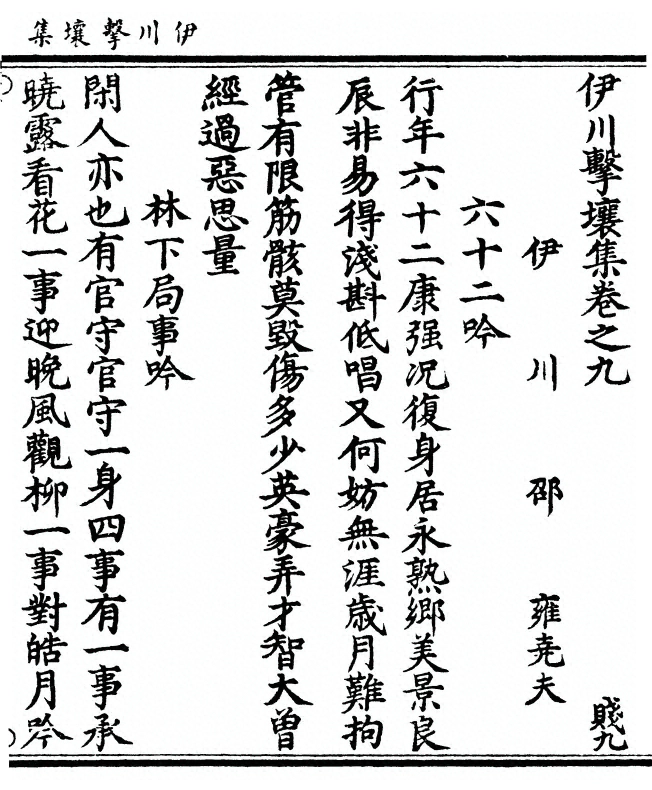 伊川擊壤集
伊川擊壤集卷之九
賤九
伊川邵雍尭夫
六十二吟
行年六十二康强况復身居永熟鄉美景良
辰非易得淺斟低唱又何妨無涯歲月難拘
管有限筋骸莫毀傷多少英豪弄才智大曾
經過惡思量
林下局事吟
閑人亦也有官守官守一身四事有一事承
曉露看花一事迎晚風觀柳一事對皓月吟